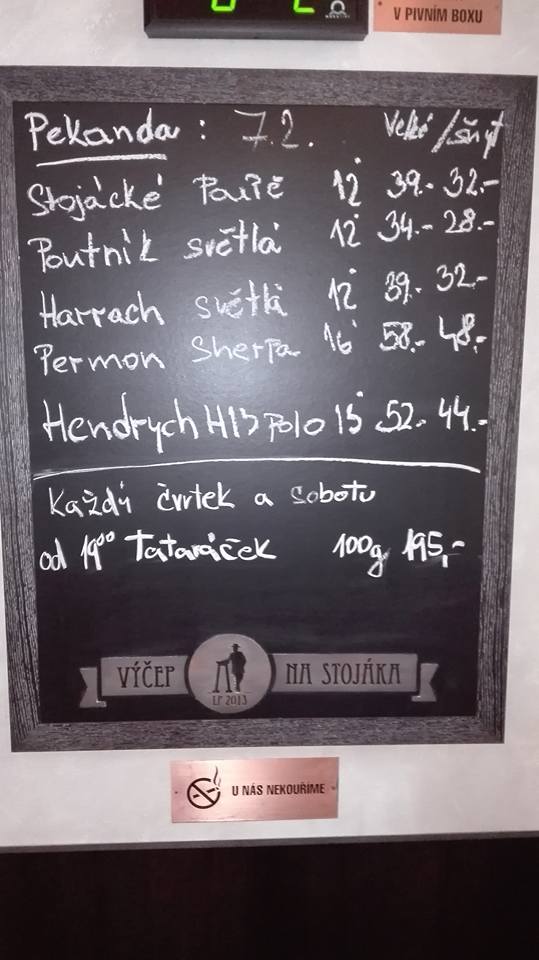 V PIVNÍM BOXU
Pekanda : 7.2. Velké / šnyt
Stojácké 12° 39.- 32.-
Poutník světlá 12° 34.- 28.-
Harrach světlá 12° 39.- 32.-
Permon Sherpa 16° 58.- 48.-
Hendrych H15 polo 15° 52.- 44.-
Každý čvrtek a sobotu
od 19⁰⁰ Tataráček 100g 195,-
VÝČEP NA STOJÁKA
LP 2013
U NÁS NEKOUŘÍME